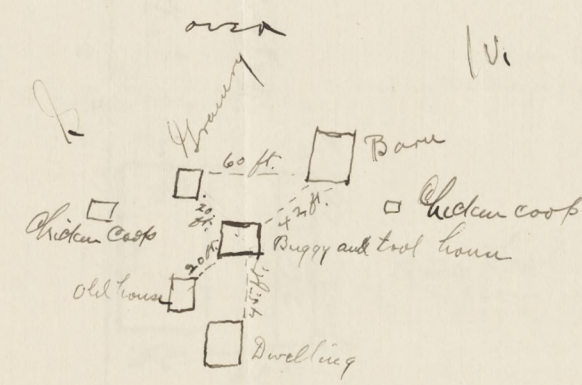 over
Granary
60 ft.
Barn
20 ft.
42 ft.
Chicken coop
Chicken coop
Buggy and tool house
20 ft.
Old house
45 ft.
Dwelling